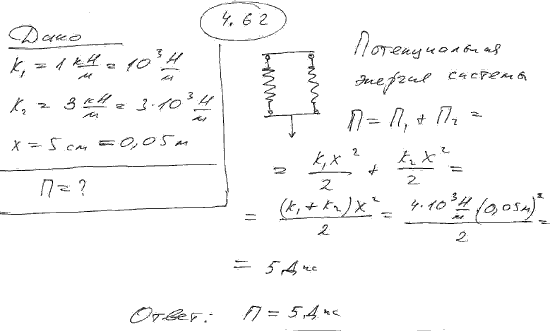 4.62
Дано
K₁ = 1 кН/м = 10³ Н/м
K₂ = 3 кН/м = 3·10³ Н/м
x = 5 см = 0,05 м
П = ?
Потенциальная
энергия системы
П = П₁ + П₂ =
= k₁x²/2 + k₂x²/2 =
= (k₁ + k₂)x²/2 = 4·10³ Н/м (0,05м)²/2 =
= 5 Дж
Ответ: П = 5 Дж